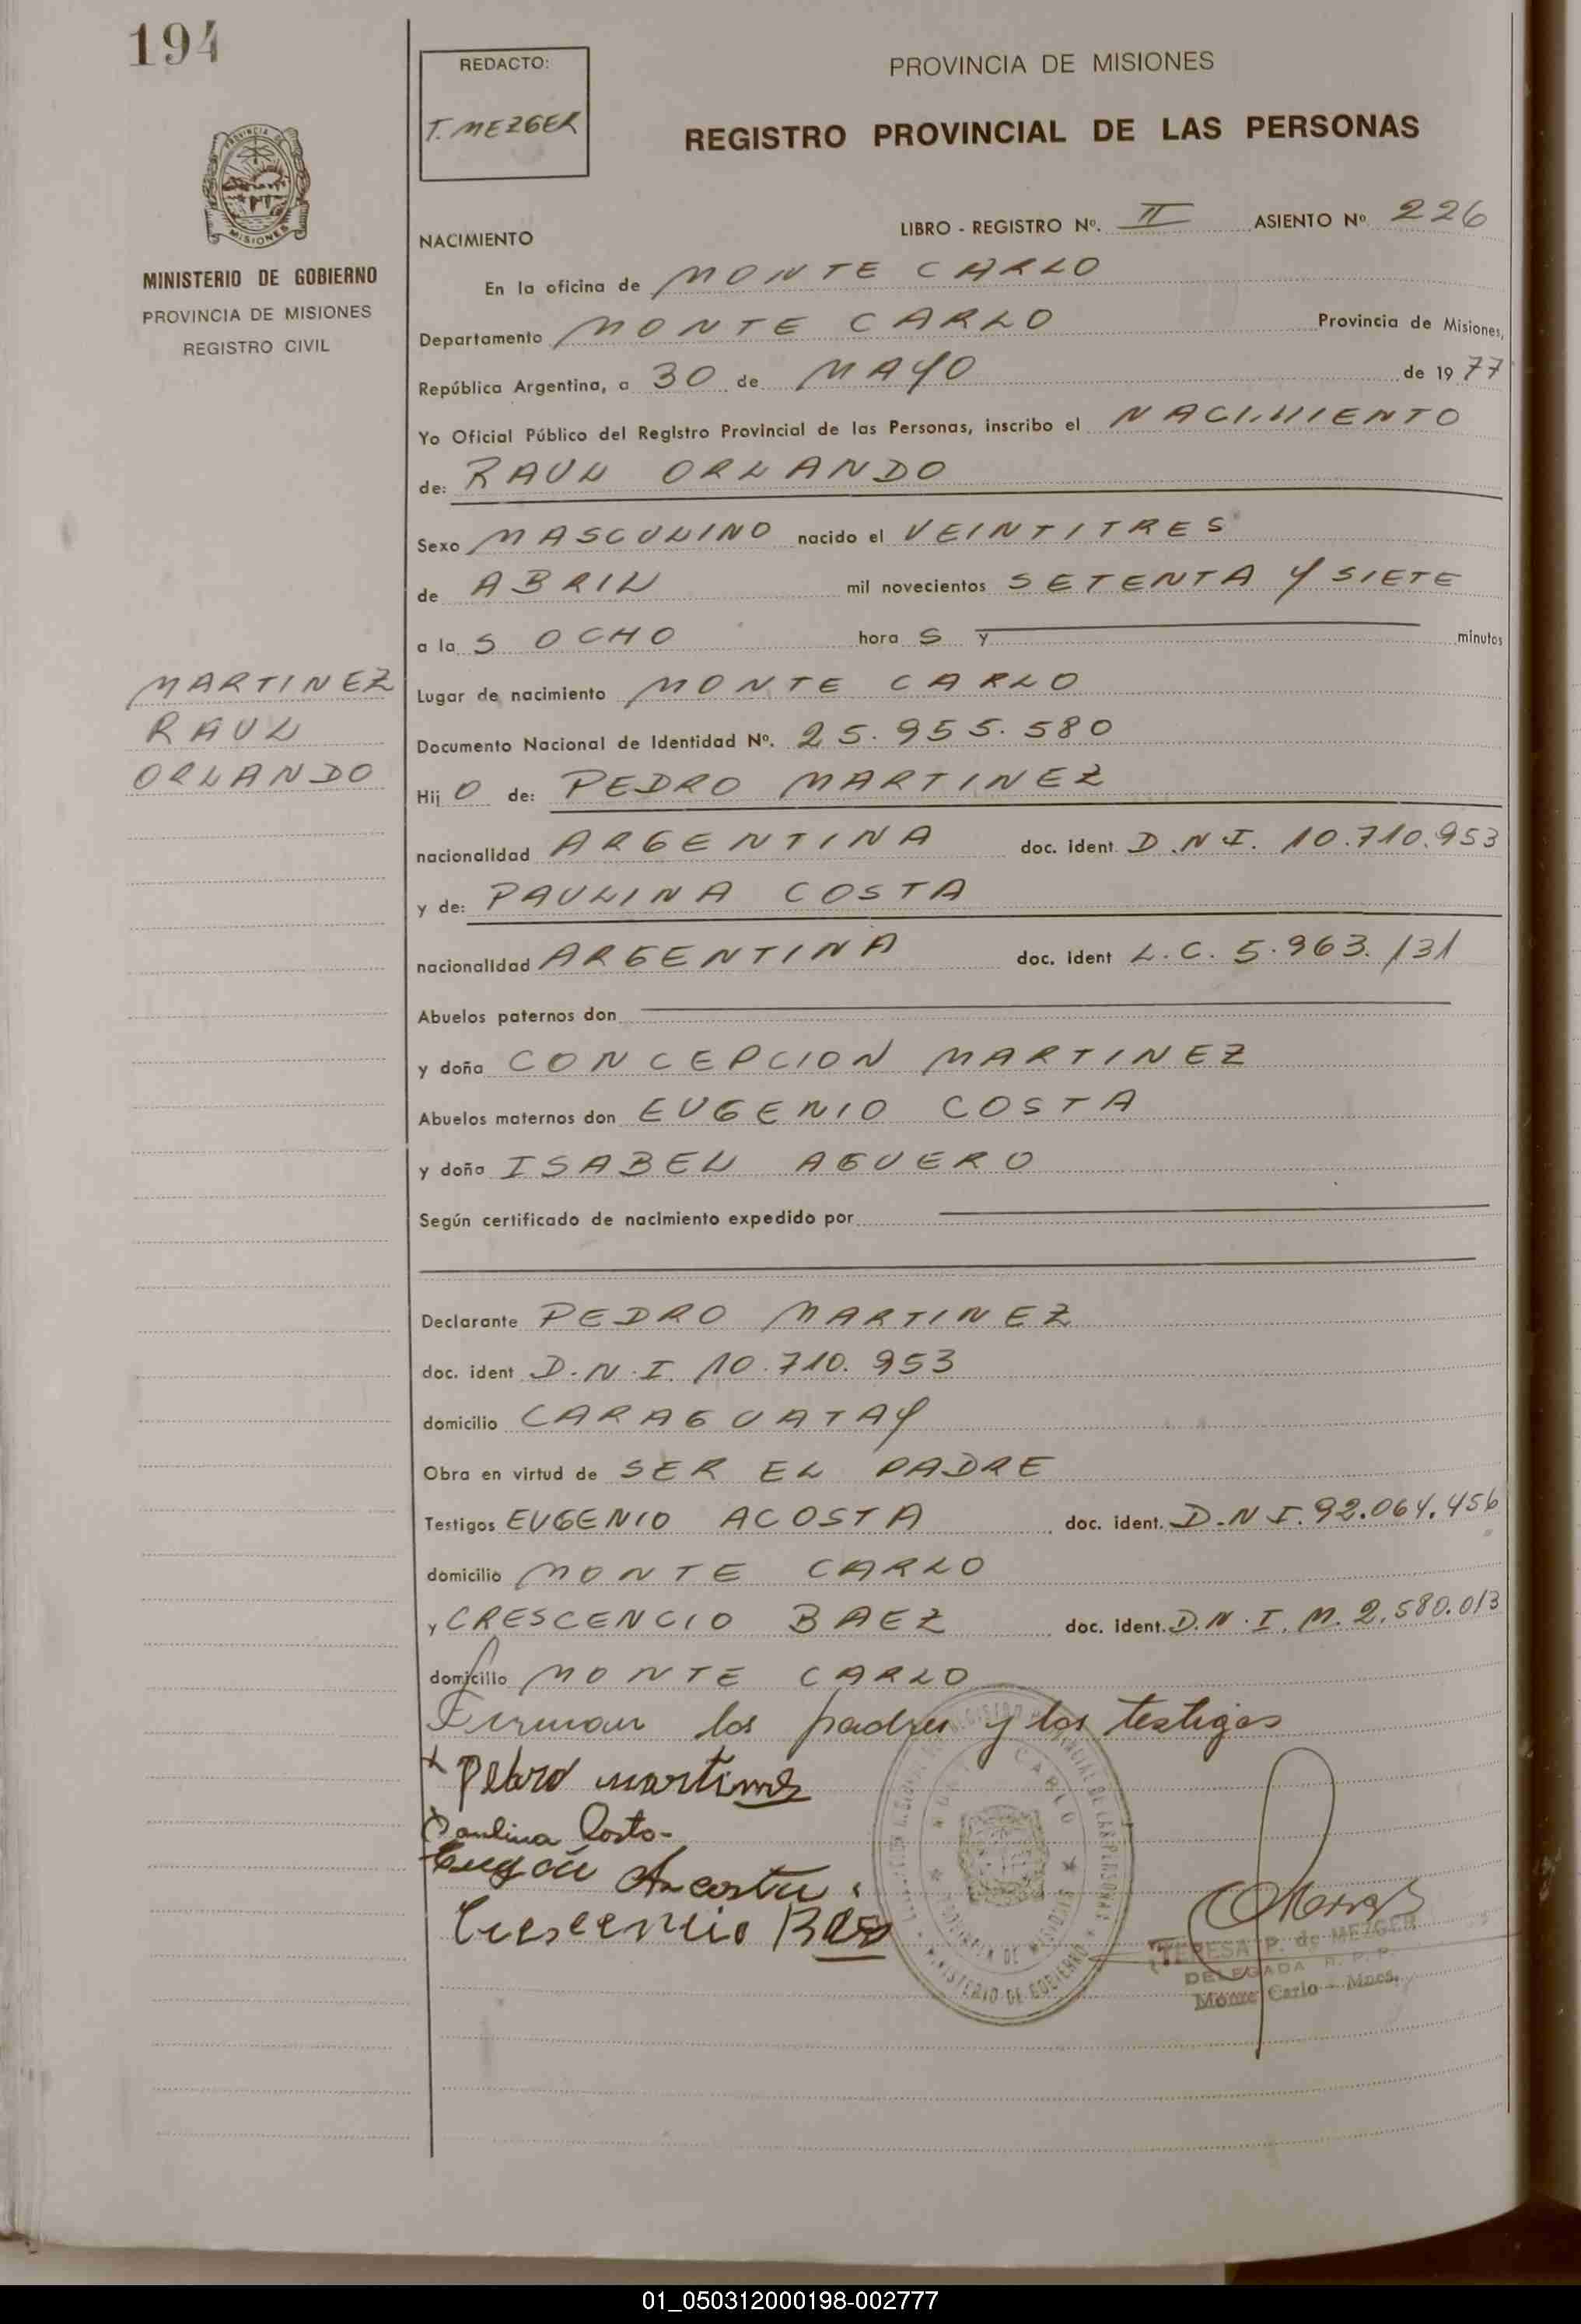 194
REDACTO:
T. MEZGER
PROVINCIA DE MISIONES
REGISTRO PROVINCIAL DE LAS PERSONAS
PROVINCIA DE
MISIONES
MINISTERIO DE GOBIERNO
PROVINCIA DE MISIONES
REGISTRO CIVIL
NACIMIENTO
LIBRO - REGISTRO Nº. II ASIENTO Nº 226
En la oficina de MONTE CARLO
Departamento MONTE CARLO Provincia de Misiones,
República Argentina, a 30 de MAYO de 1977
Yo Oficial Público del Registro Provincial de las Personas, inscribo el NACIMIENTO
de: RAUL ORLANDO
Sexo MASCULINO nacido el VEINTITRES
de ABRIL mil novecientos SETENTA Y SIETE
a la S OCHO hora S y minutos
MARTINEZ
RAUL
ORLANDO
Lugar de nacimiento MONTE CARLO
Documento Nacional de Identidad Nº. 25.955.580
Hij O de: PEDRO MARTINEZ
nacionalidad ARGENTINA doc. ident D.N.I. 10.710.953
y de: PAULINA COSTA
nacionalidad ARGENTINA doc. ident L.C. 5.963.131
Abuelos paternos don
y doña CONCEPCION MARTINEZ
Abuelos maternos don EUGENIO COSTA
y doña ISABEL AGUERO
Según certificado de nacimiento expedido por
Declarante PEDRO MARTINEZ
doc. ident D.N.I. 10.710.953
domicilio CARAGUATAY
Obra en virtud de SER EL PADRE
Testigos EUGENIO ACOSTA doc. ident. D.N.I. 92.064.456
domicilio MONTE CARLO
y CRESCENCIO BAEZ doc. ident. D.N.I. M. 2.580.013
domicilio MONTE CARLO
Firman los padres y los testigos
x Pedro martinez
Paulina Costa
Acosta
Crescencio Baez
MONTE CARLO
PROVINCIA DE MISIONES
MINISTERIO DE GOBIERNO
TERESA P. de MEZGER
DELEGADA R. P. P.
Monte Carlo - Mnes.
01_050312000198-002777